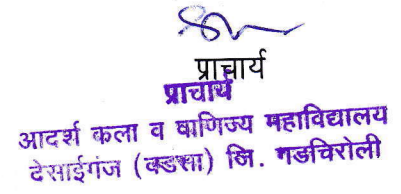 प्राचार्य
प्राचार्य
आदर्श कला व वाणिज्य महाविद्यालय
देसाईगंज (वडसा) जि. गडचिरोली